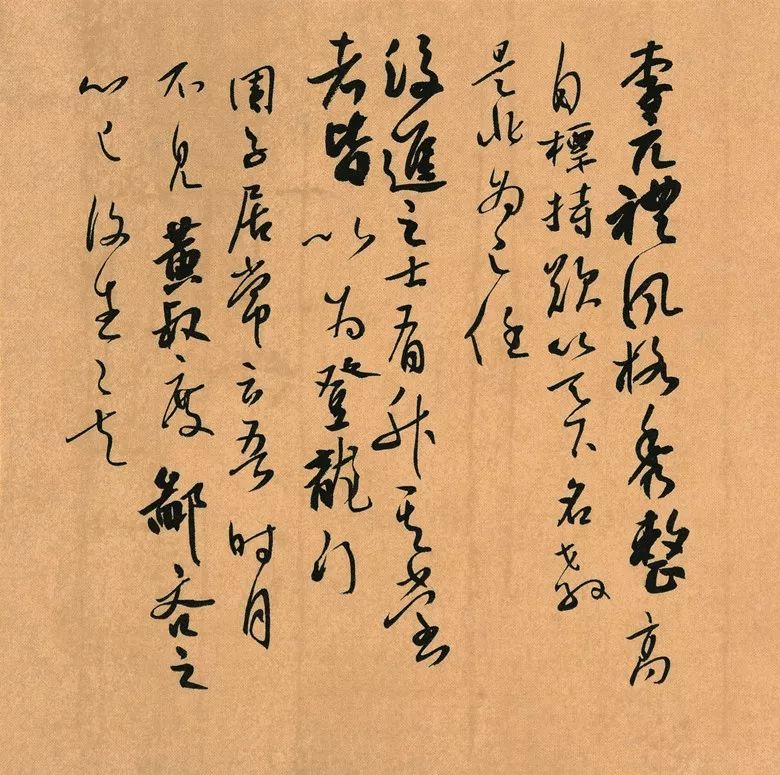 李元禮風格秀整高
自標持欲以天下名教
是非為己任
後進之士有升其堂
者皆以為登龍門
周子居常云吾时月
不見黃叔度鄙吝之
心已復生矣